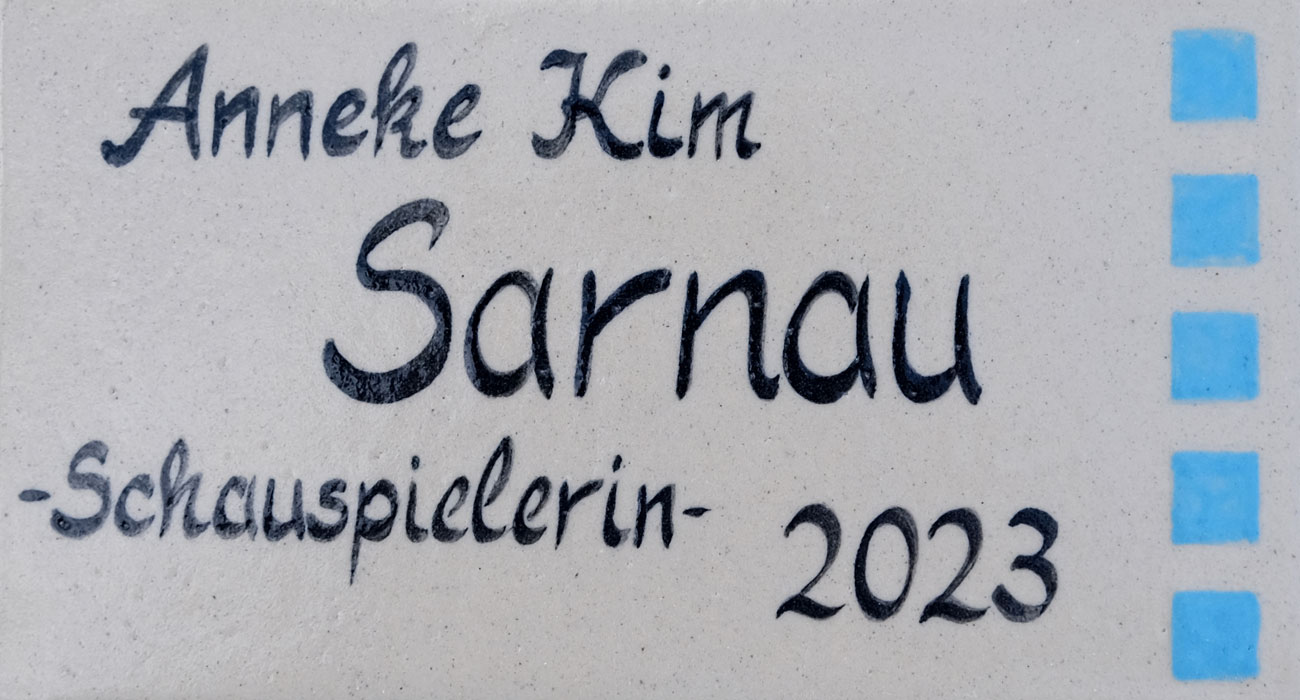 Anneke Kim
Sarnau
-Schauspielerin-
2023